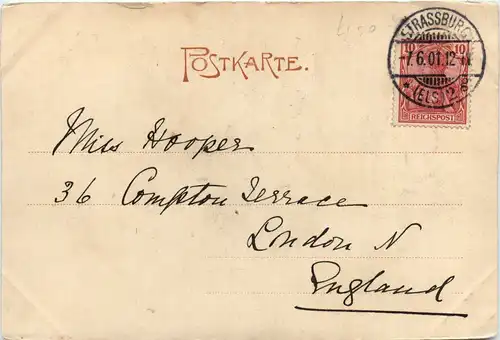 STRASSBURG
7.6.01.12-
* (ELS.) 2
POSTKARTE.
10 10
REICHSPOST
Miss Hooper
36 Compton Terrace
London N
England